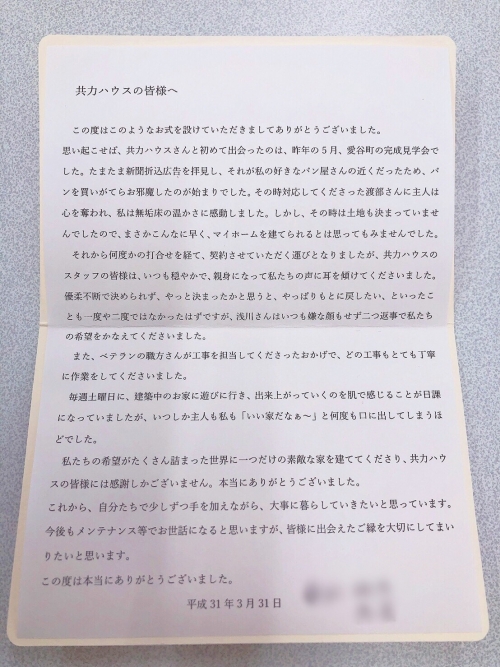 共力ハウスの皆様へ
この度はこのようなお式を設けていただきましてありがとうございました。
思い起こせば、共力ハウスさんと初めて出会ったのは、昨年の5月、愛谷町の完成見学会で
した。たまたま新聞折込広告を拝見し、それが私の好きなパン屋さんの近くだったため、パ
ンを買いがてらお邪魔したのが始まりでした。その時対応してくださった渡部さんに主人は
心を奪われ、私は無垢床の温かさに感動しました。しかし、その時は土地も決まっていませ
んでしたので、まさかこんなに早く、マイホームを建てられるとは思ってもみませんでした。
それから何度かの打合せを経て、契約させていただく運びとなりましたが、共力ハウスの
スタッフの皆様は、いつも穏やかで、親身になって私たちの声に耳を傾けてくださいました。
優柔不断で決められず、やっと決まったかと思うと、やっぱりもとに戻したい、といったこ
とも一度や二度ではなかったはずですが、浅川さんはいつも嫌な顔もせず二つ返事で私たち
の希望をかなえてくださいました。
また、ベテランの職方さんが工事を担当してくださったおかげで、どの工事もとても丁寧
に作業をしてくださいました。
毎週土曜日に、建築中のお家に遊びに行き、出来上がっていくのを肌で感じることが日課
になっていましたが、いつしか主人も私も「いい家だなぁ〜」と何度も口に出してしまうほ
どでした。
私たちの希望がたくさん詰まった世界に一つだけの素敵な家を建ててくださり、共力ハウ
スの皆様には感謝しかございません。本当にありがとうございました。
これから、自分たちで少しずつ手を加えながら、大事に暮らしていきたいと思っています。
今後もメンテナンス等でお世話になると思いますが、皆様に出会えたご縁を大切にしてまい
りたいと思います。
この度は本当にありがとうございました。
平成31年3月31日